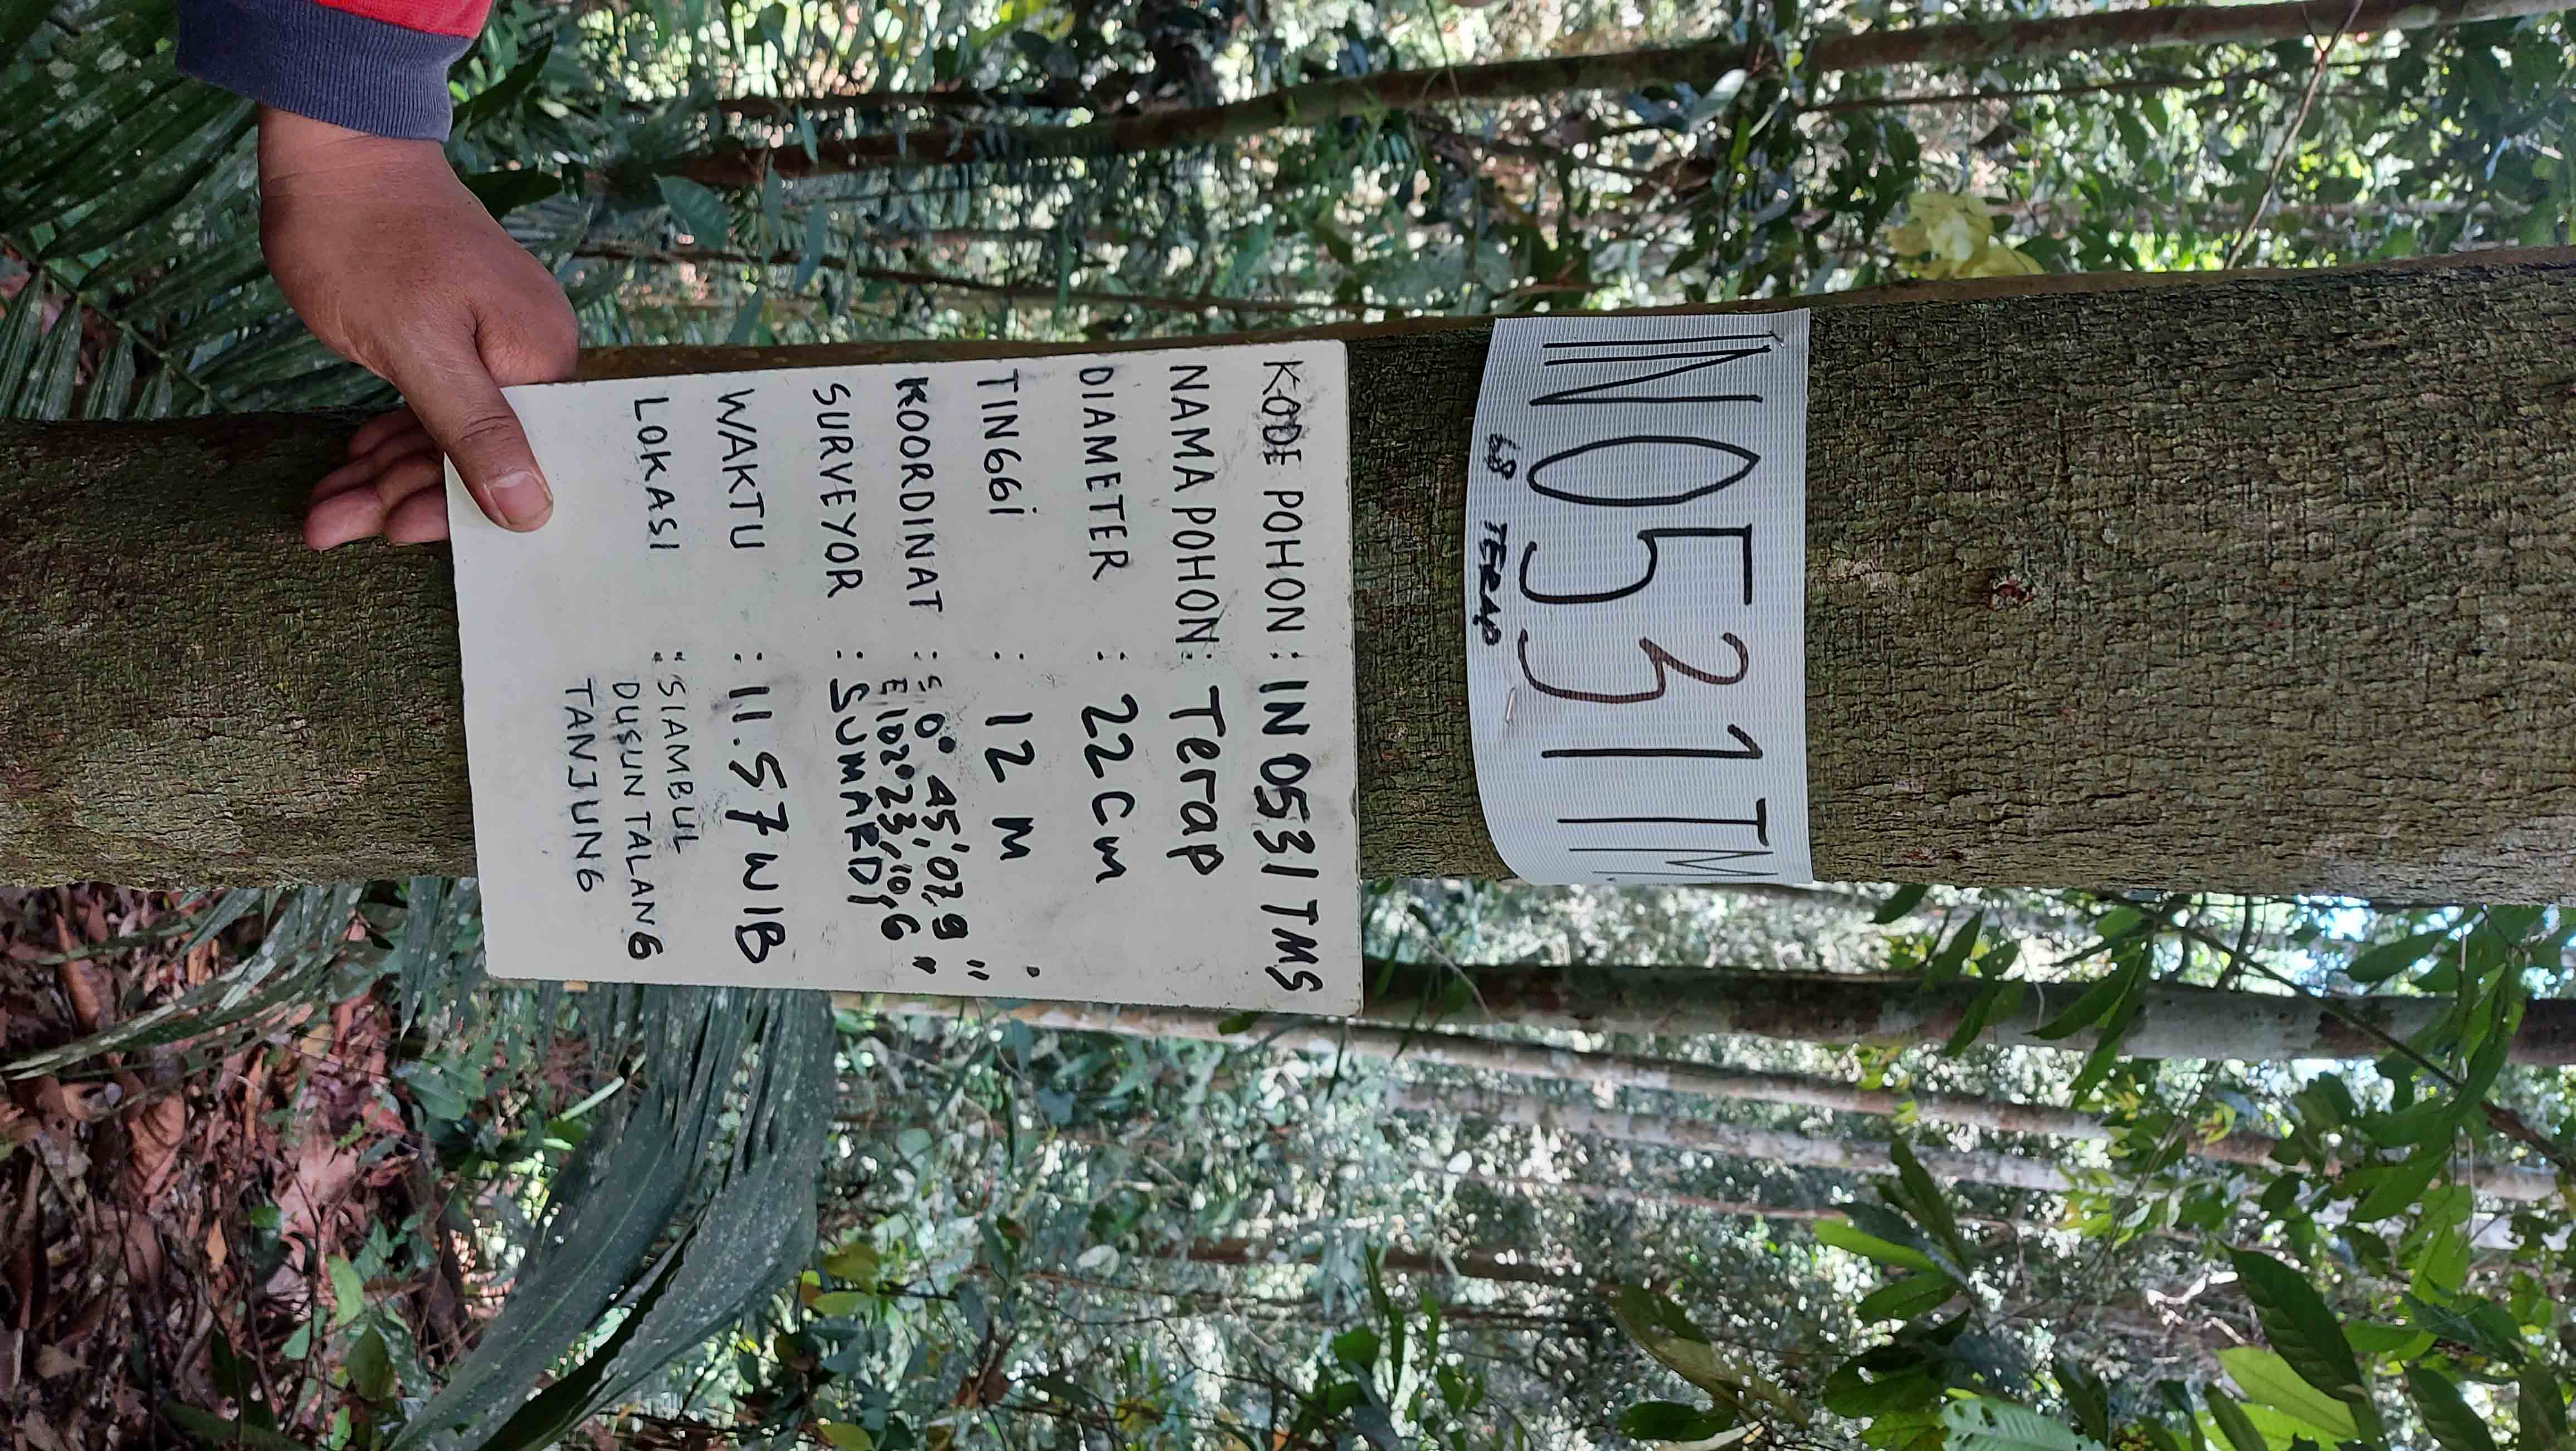 IN0531TM
68 TERAP
KODE POHON : IN 0531 TMS
NAMA POHON : Terap
DIAMETER : 22 Cm
TINGGi : 12 M
KOORDINAT : S 0° 45' 07,9 "
E 102° 23' 10,6 "
SURVEYOR : SUMARDI
WAKTU : 11.57 WIB
LOKASI : SIAMBUL
DUSUN TALANG
TANJUNG